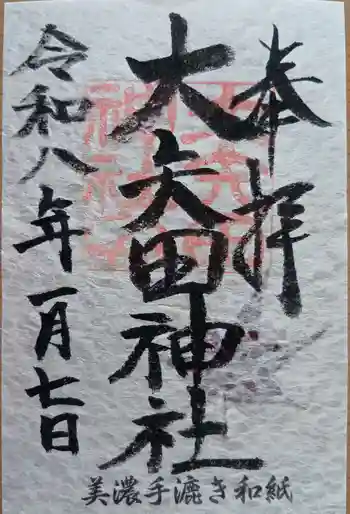 奉拝
大矢田神社
令和八年一月七日
美濃手漉き和紙